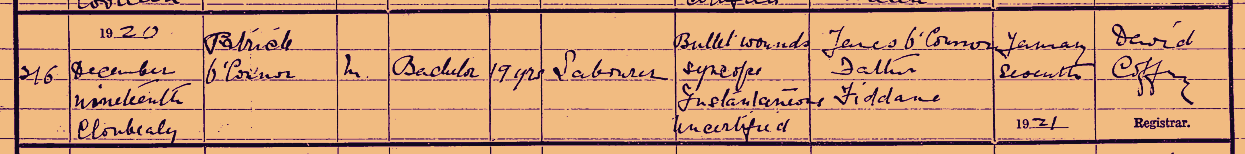 1920
216
December
nineteenth
Clonbealy
Patrick
O'Connor
M.
Bachelor
19 yrs
Labourer
Bullet wounds
syncope
Instantaneous
Uncertified
James O'Connor
Father
Fiddane
January
Seventh
1921
David
Coffey
Registrar.